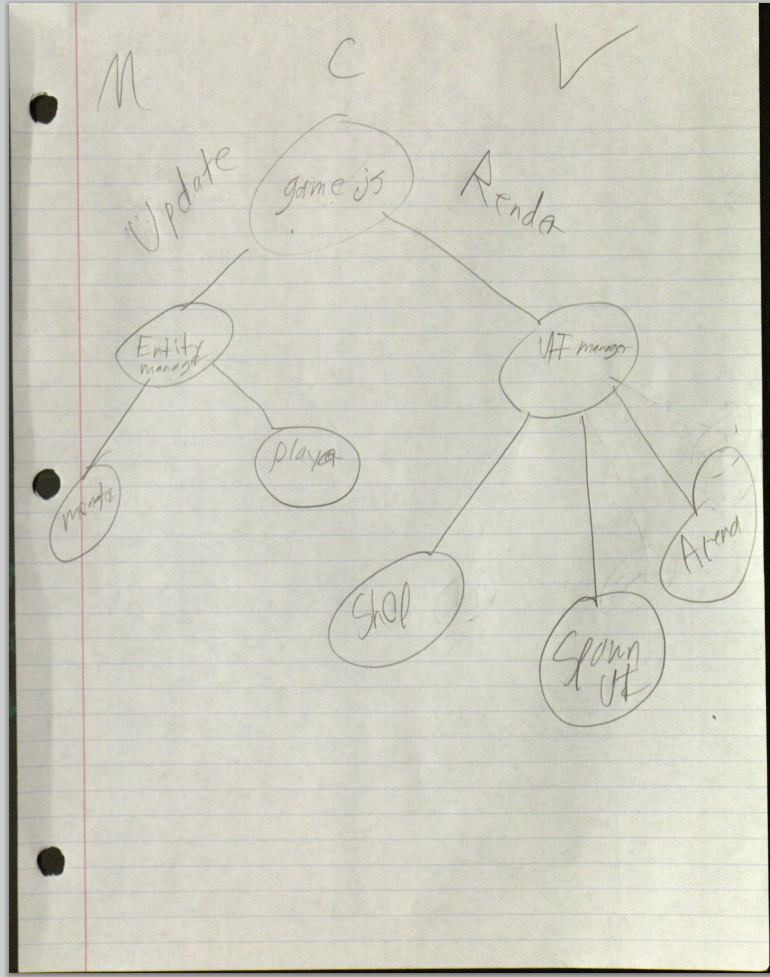 M C V
Update
game.js
Render
Entity
manager
UI manager
player
Shop
Spawn
UI
Arena